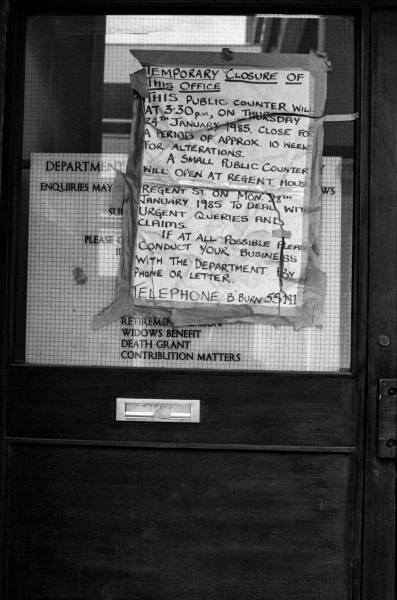 TEMPORARY CLOSURE OF
THIS OFFICE
THIS PUBLIC COUNTER WILL
AT 3.30 P.M., ON THURSDAY
24TH JANUARY 1985, CLOSE FOR
A PERIOD OF APPROX. 10 WEEKS
FOR ALTERATIONS.
A SMALL PUBLIC COUNTER
WILL OPEN AT REGENT HOUSE
REGENT ST. ON MON. 28TH
JANUARY 1985 TO DEAL WITH
URGENT QUERIES AND
CLAIMS.
IF AT ALL POSSIBLE PLEASE
CONDUCT YOUR BUSINESS
WITH THE DEPARTMENT BY
PHONE OR LETTER.
TELEPHONE: B'BURN 55111
DEPARTMENT
ENQUIRIES MAY
PLEASE
RETIREMENT PENSION
WIDOWS BENEFIT
DEATH GRANT
CONTRIBUTION MATTERS